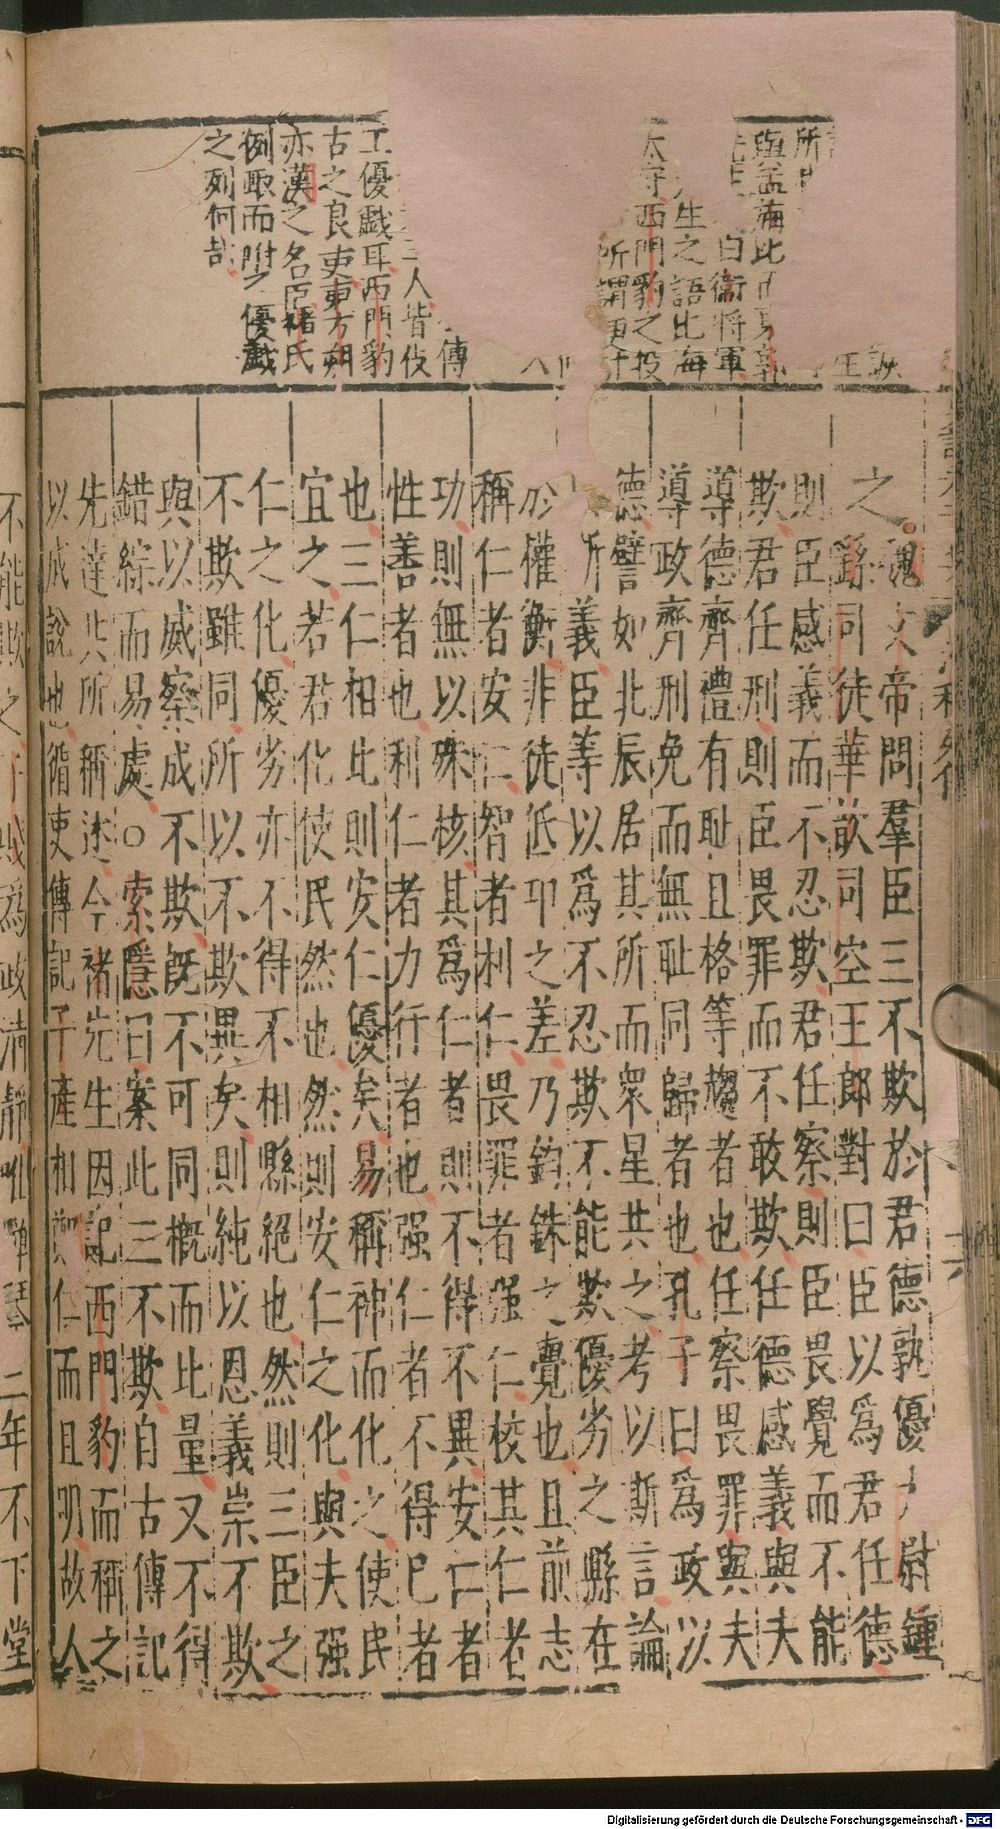 所
與孟海比而易郭
白衛將軍
生之語比海
太守西門豹之投
所謂
傳
人皆伎
工優戲耳西門豹
古之良吏東方朔
亦漢之名臣褚氏
例取而附之優戲
之列何哉
之。魏文帝問羣臣三不欺於君德孰優太尉鍾
繇司徒華歆司空王郎對曰臣以爲君任德
則臣感義而不忍欺君任察則臣畏覺而不能
欺君任刑則臣畏罪而不敢欺任德感義與夫
導德齊禮有耻且格等趨者也任察畏罪與夫
導政齊刑免而無耻同歸者也孔子曰爲政以
德譬如北辰居其所而衆星共之考以斯言論
斯義臣等以爲不忍欺不能欺優劣之縣在
於權衡非徒低卬之差乃鈞銖之覺也且前志
稱仁者安仁智者利仁畏罪者强仁校其仁者
功則無以殊核其爲仁者則不得不異安仁者
性善者也利仁者力行者也强仁者不得已者
也三仁相比則安仁優矣易稱神而化之使民
宜之若君化使民然也然則安仁之化與夫强
仁之化優劣亦不得不相縣絕也然則三臣之
不欺雖同所以不欺異矣則純以恩義崇不欺
與以威察成不欺既不可同概而比量又不得
錯綜而易處○索隱曰案此三不欺自古傳記
先達共所稱述今褚先生因記西門豹而稱之
以成說也循吏傳記子產相鄭仁而且明故人
六
不能欺之子賤為政清靜唯彈琴三年不下堂
Digitalisierung gefördert durch die Deutsche Forschungsgemeinschaft - DFG